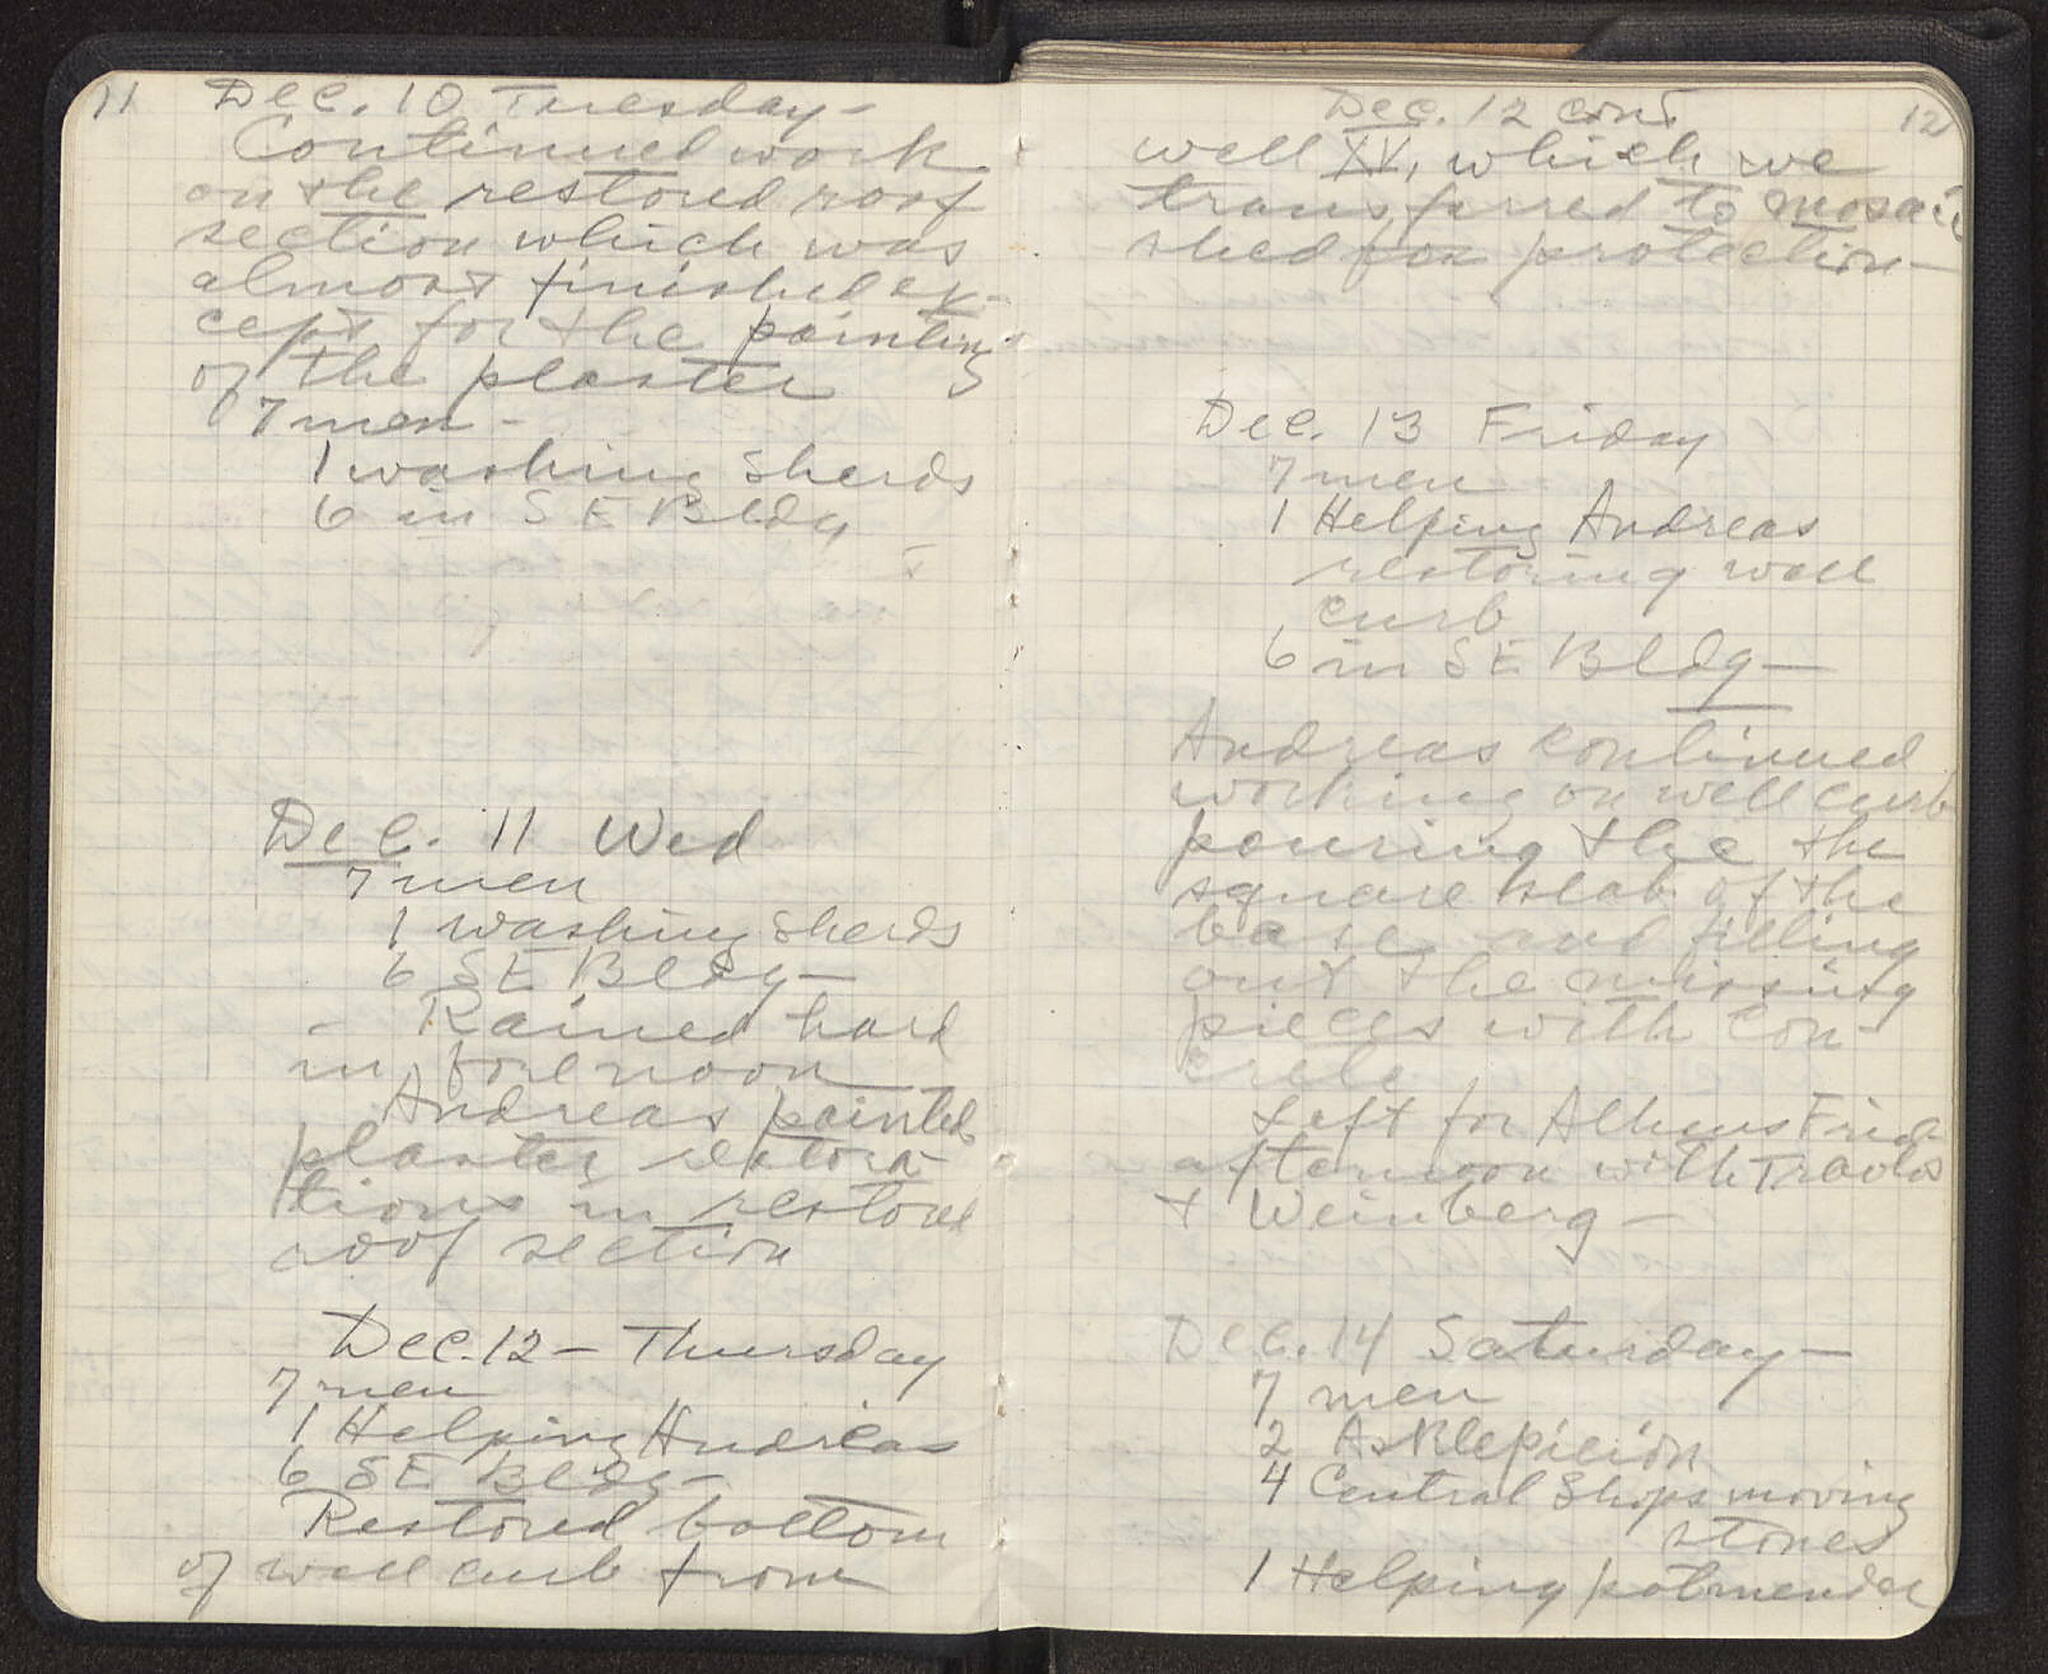 11
Dec. 10 Tuesday -
Continued work
on the restored roof
section which was
almost finished ex-
cept for the painting
of the plaster
7 men -
1 washing sherds
6 in SE Bldg
Dec. 11 Wed
7 men
1 washing sherds
6 SE Bldg -
- Rained hard
in forenoon
Andreas painted
plaster restora-
tions in restored
roof section
Dec. 12 - Thursday
7 men
1 Helping Andreas
6 SE Bldg -
Restored bottom
of well curb from
12
Dec. 12 cont
well XV, which we
transferred to mosaic
shed for protection -
Dec. 13 Friday
7 men
1 Helping Andreas
restoring well
curb
6 in SE Bldg -
Andreas continued
working on well curb
pouring the the
square slab of the
base and filling
out the missing
pieces with con-
crete
Left for Athens Frid
afternoon with Travlos
+ Weinberg -
Dec. 14 Saturday -
7 men
2 Asklepieion
4 Central Shops moving
stones
1 Helping potmender